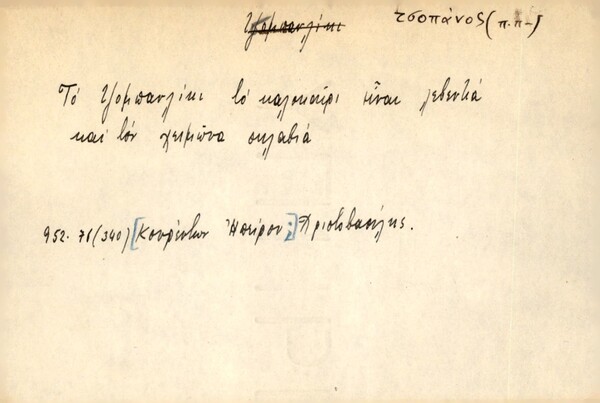 Τζομπανλίκι τσοπάνος (π.π-)
Τό Τζομπανλίκι τό καλοκαίρι εἶναι λεβεντιά
καί τόν χειμῶνα σκλαβιά
952. 76 (340) [Κουρέντων Ἠπείρου;] Χριστοβασίλης.